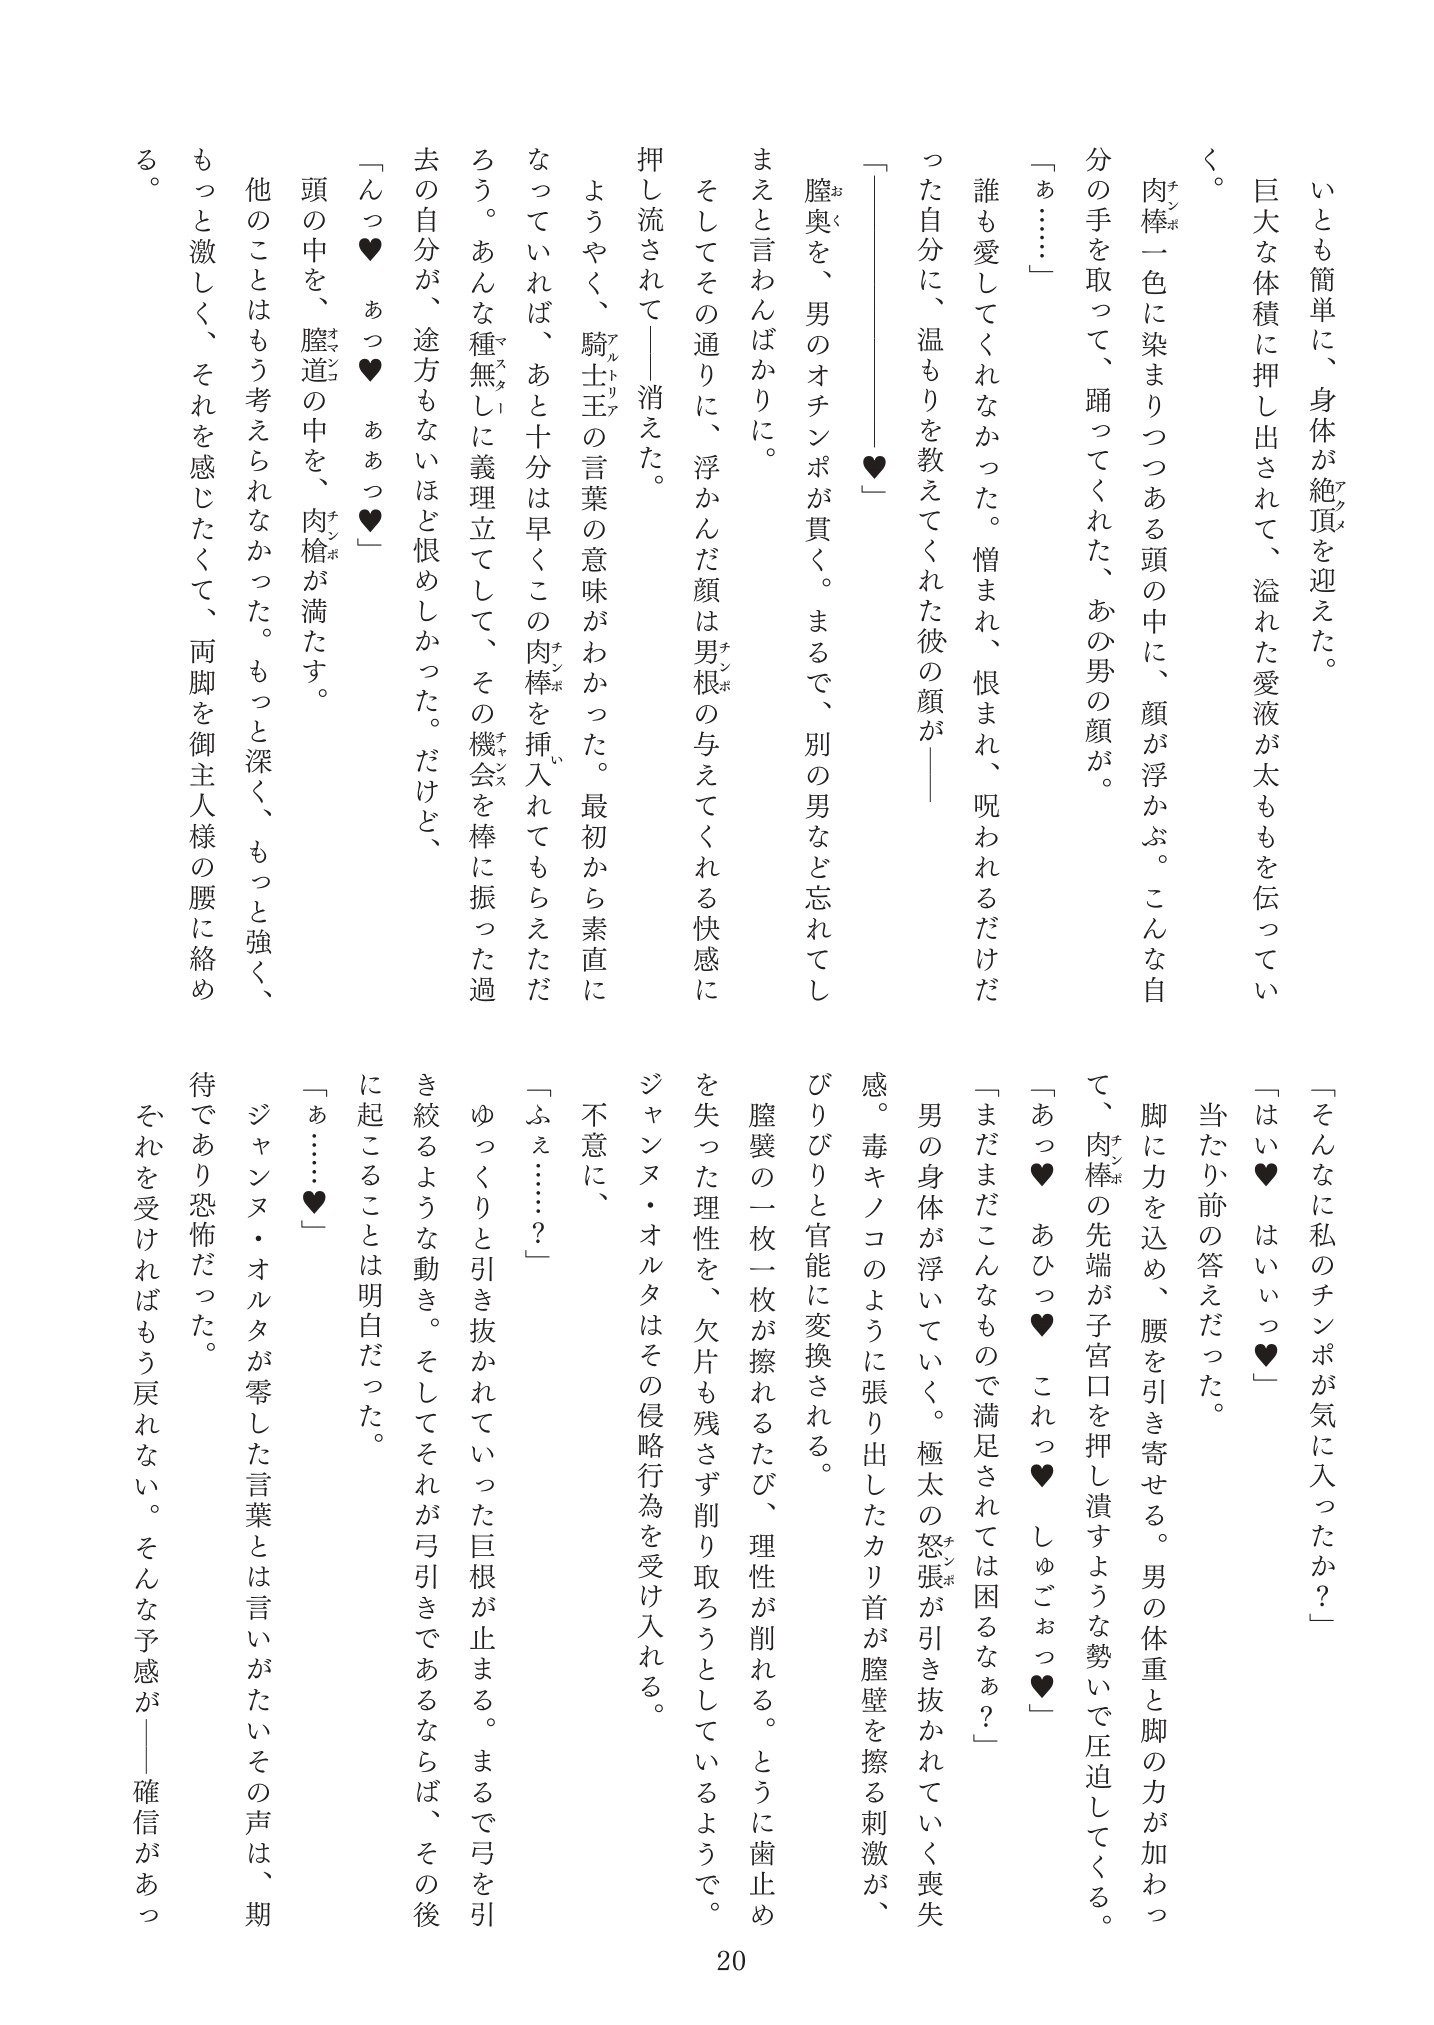 いとも簡単に、身体が絶頂を迎えた。
巨大な体積に押し出されて、溢れた愛液が太ももを伝ってい
く。
肉棒一色に染まりつつある頭の中に、顔が浮かぶ。こんな自
分の手を取って、踊ってくれた、あの男の顔が。
「ぁ……」
誰も愛してくれなかった。憎まれ、恨まれ、呪われるだけだ
った自分に、温もりを教えてくれた彼の顔が――
「――――――――♥」
膣奥を、男のオチンポが貫く。まるで、別の男など忘れてし
まえと言わんばかりに。
そしてその通りに、浮かんだ顔は男根の与えてくれる快感に
押し流されて――消えた。
ようやく、騎士王の言葉の意味がわかった。最初から素直に
なっていれば、あと十分は早くこの肉棒を挿入れてもらえただ
ろう。あんな種無しに義理立てして、その機会を棒に振った過
去の自分が、途方もないほど恨めしかった。だけど、
「んっ♥　ぁっ♥　ぁぁっ♥」
頭の中を、膣道の中を、肉槍が満たす。
他のことはもう考えられなかった。もっと深く、もっと強く、
もっと激しく、それを感じたくて、両脚を御主人様の腰に絡め
る。
「そんなに私のチンポが気に入ったか？」
「はい♥　はいぃっ♥」
当たり前の答えだった。
脚に力を込め、腰を引き寄せる。男の体重と脚の力が加わっ
て、肉棒の先端が子宮口を押し潰すような勢いで圧迫してくる。
「あっ♥　あひっ♥　これっ♥　しゅごぉっ♥」
「まだまだこんなもので満足されては困るなぁ？」
男の身体が浮いていく。極太の怒張が引き抜かれていく喪失
感。毒キノコのように張り出したカリ首が膣壁を擦る刺激が、
びりびりと官能に変換される。
膣襞の一枚一枚が擦れるたび、理性が削れる。とうに歯止め
を失った理性を、欠片も残さず削り取ろうとしているようで。
ジャンヌ・オルタはその侵略行為を受け入れる。
不意に、
「ふぇ……？」
ゆっくりと引き抜かれていった巨根が止まる。まるで弓を引
き絞るような動き。そしてそれが弓引きであるならば、その後
に起こることは明白だった。
「ぁ……♥」
ジャンヌ・オルタが零した言葉とは言いがたいその声は、期
待であり恐怖だった。
それを受ければもう戻れない。そんな予感が――確信があっ
20